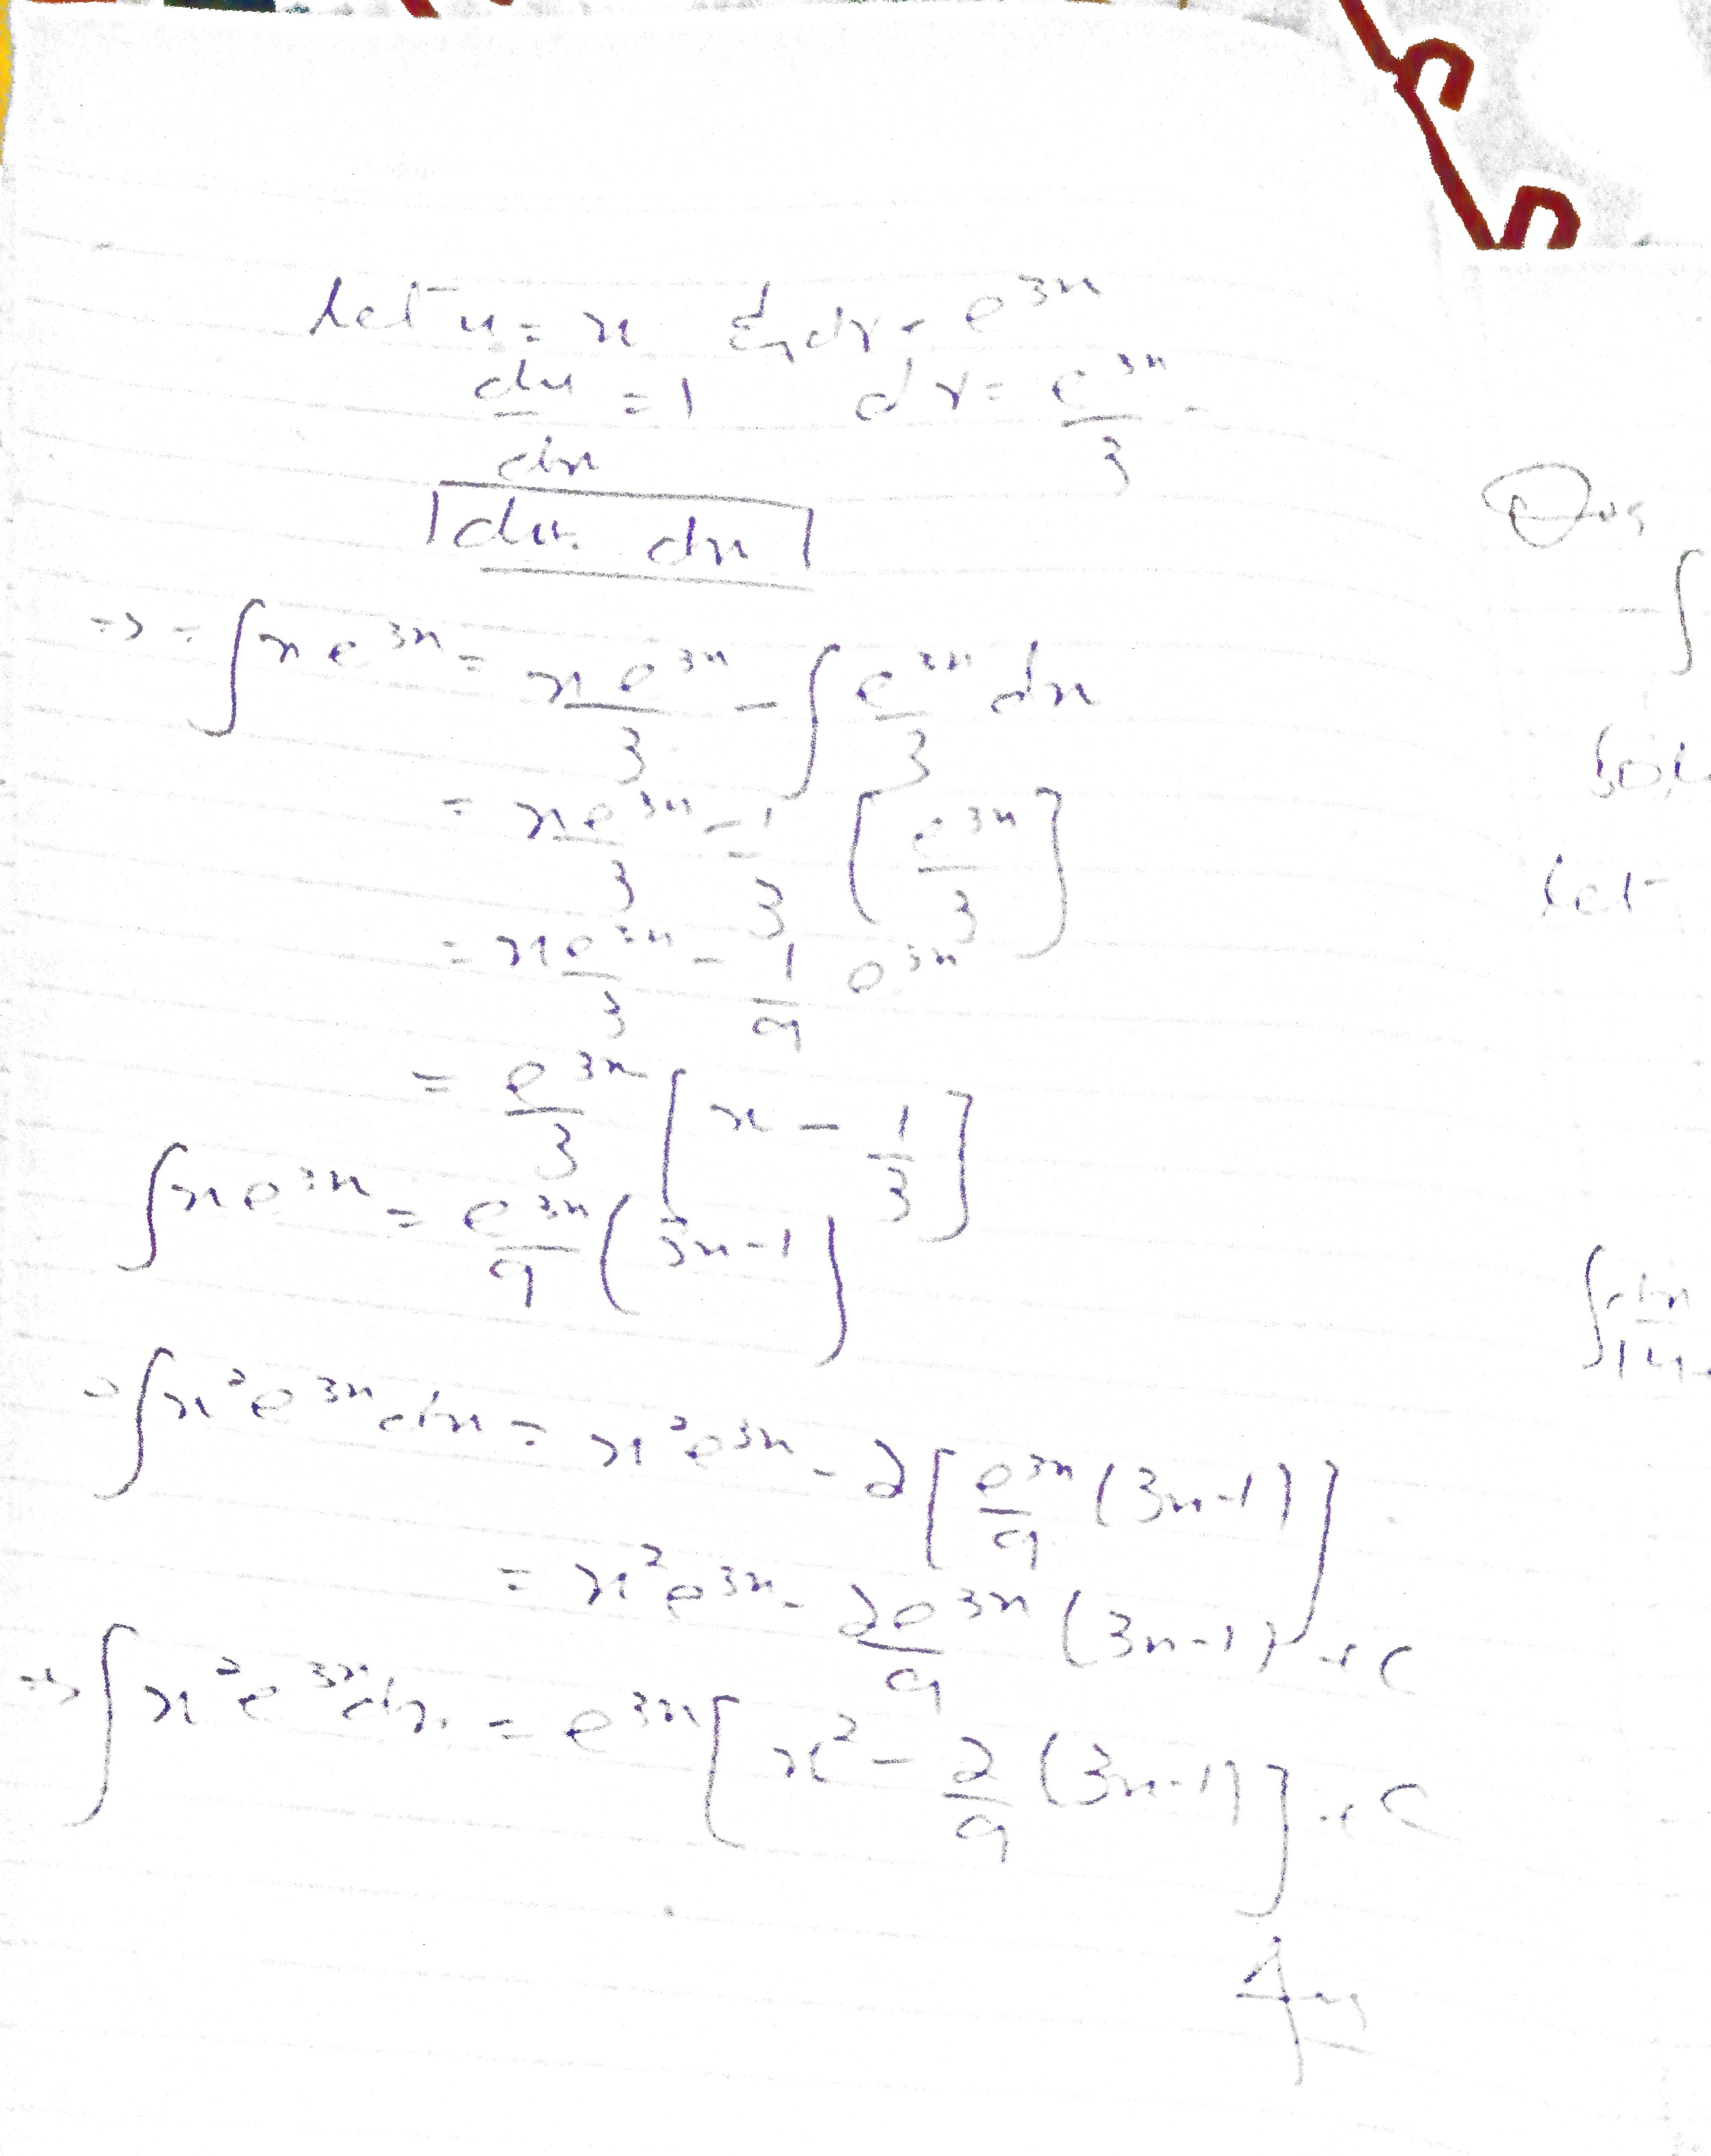 let u = x & dv = e^{3x}
du/dx = 1 dv = e^{3x}/3
du = dx
=> = ∫ x e^{3x} = x e^{3x}/3 - ∫ e^{3x}/3 dx
= x e^{3x}/3 - 1/3 [ e^{3x}/3 ]
= x e^{3x}/3 - 1/9 e^{3x}
= e^{3x}/3 [ x - 1/3 ]
∫ x e^{3x} = e^{3x}/9 ( 3x-1 )
=> ∫ x² e^{3x} dx = x² e^{3x} - 2 [ e^{3x}/9 (3x-1) ]
= x² e^{3x} - 2e^{3x}/9 (3x-1) + C
=> ∫ x² e^{3x} dx = e^{3x} [ x² - 2/9 (3x-1) ] + C
Ans
Ques
∫
Sol
let
∫ dx